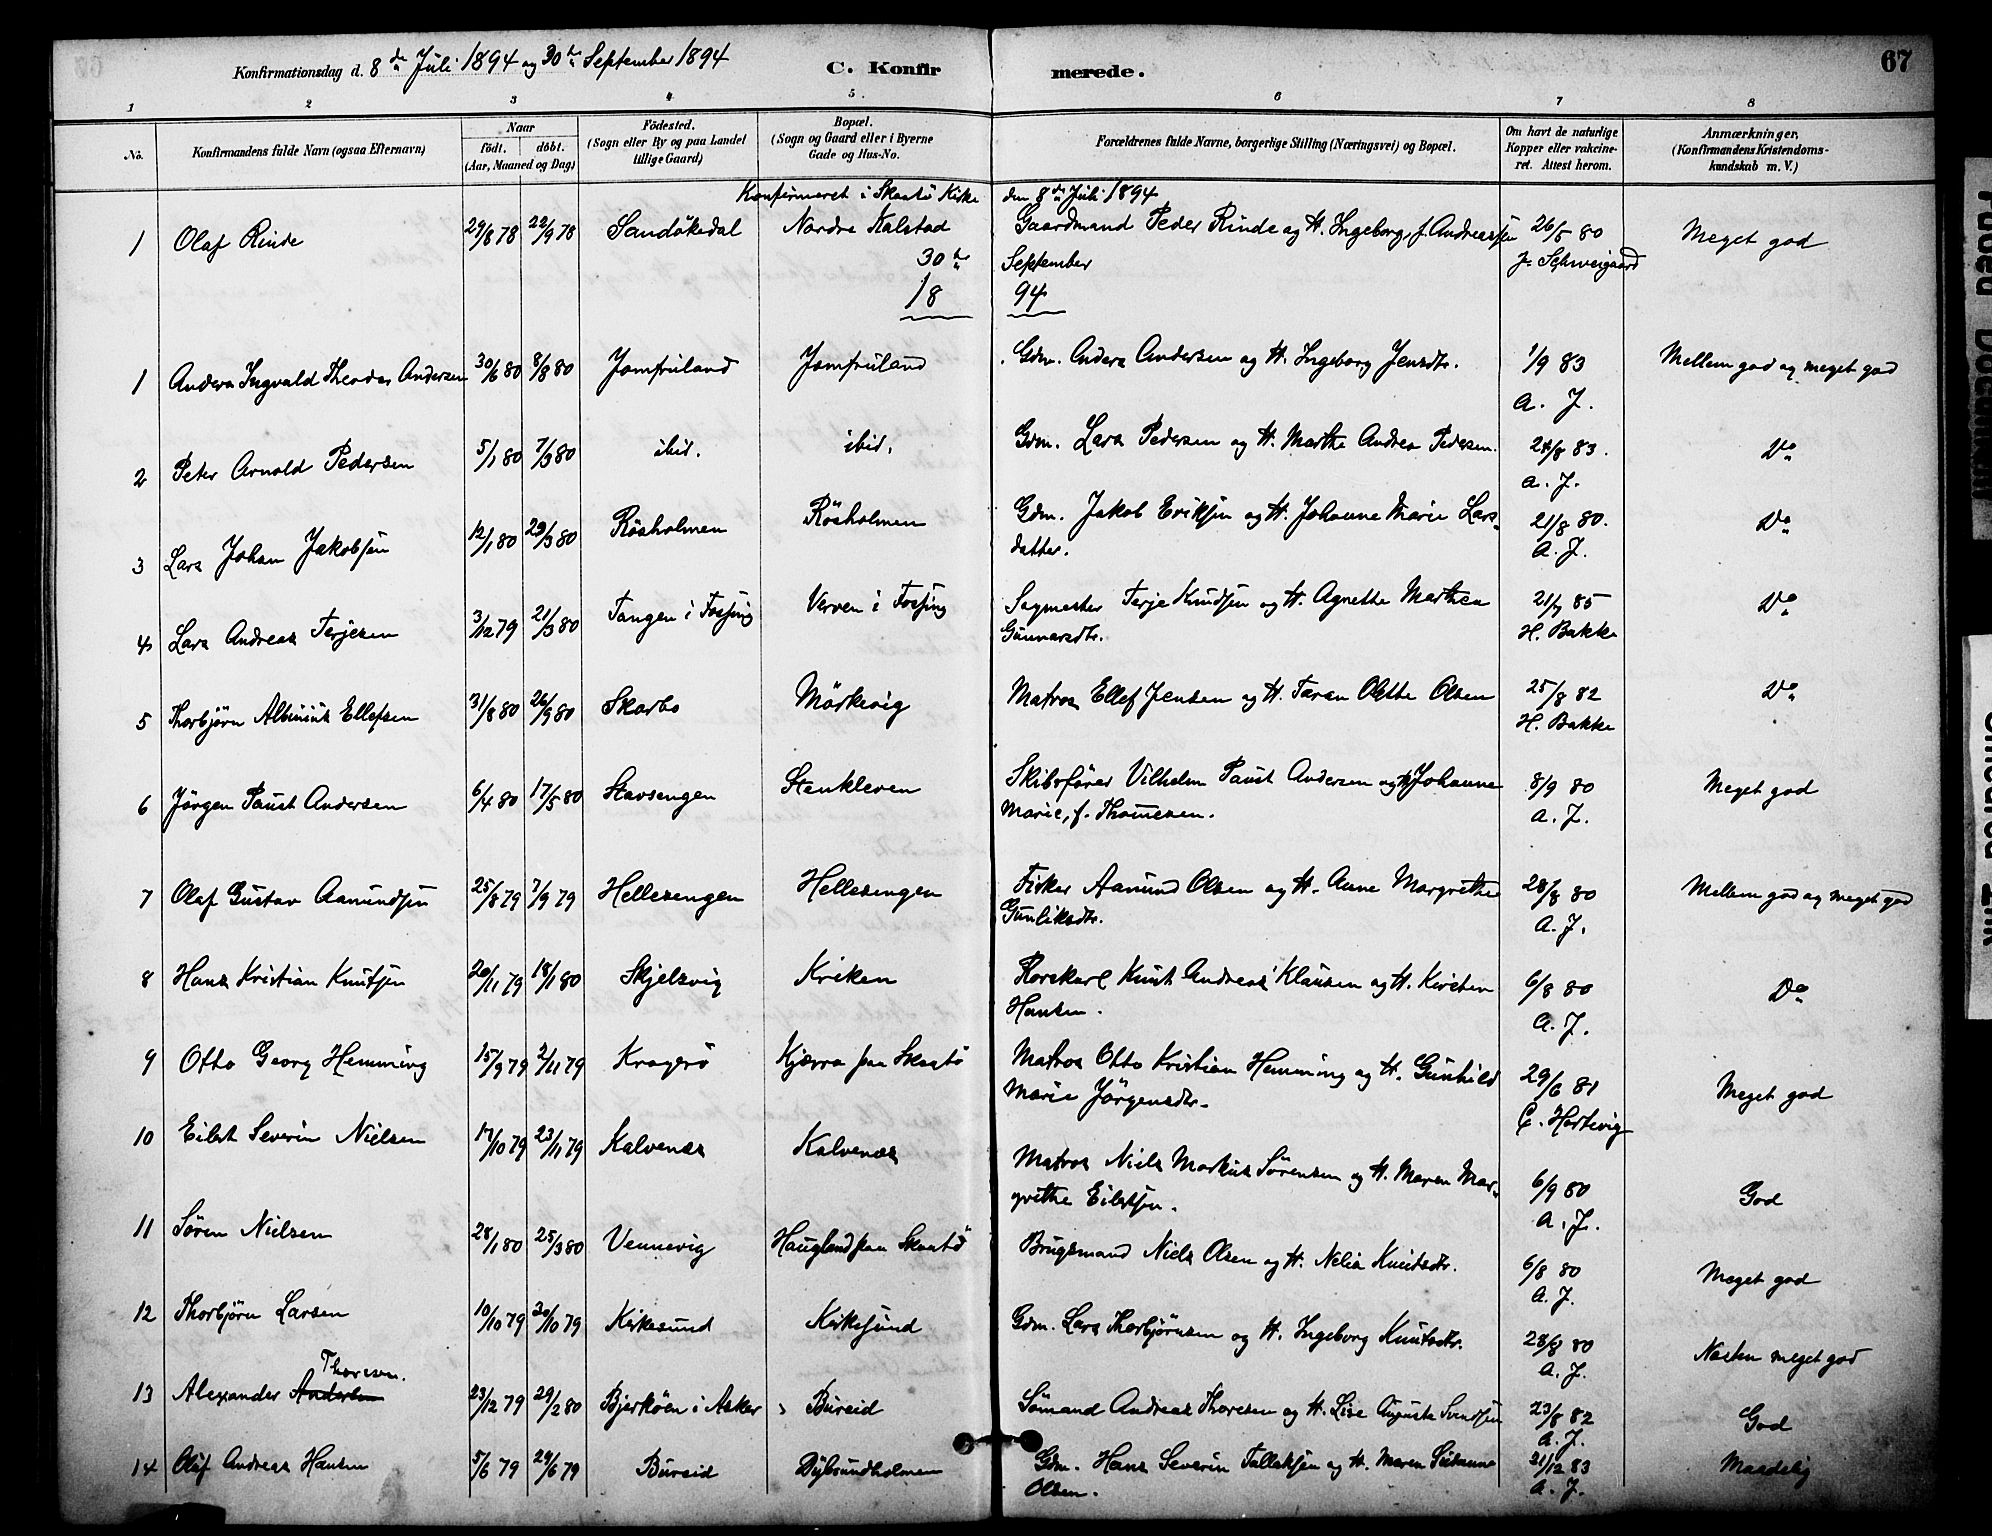 Konfirmationsdag d. 8de Juli 1894 og 30te September 1894 C. Konfirmerede. 67
1 2 3 4 5 6 7 8
No. Konfirmandens fulde Navn (ogsaa Efternavn) Naar födt. döbt. (Aar, Maaned og Dag) Födested. (Sogn eller By og paa Landet tillige Gaard) Bopæl. (Sogn og Gaard eller i Byerne Gade og Hus-No. Forældrenes fulde Navne, borgerlige Stilling (Næringsvei) og Bopæl. Om havt de naturlige Kopper eller vakcineret. Attest herom. Anmærkninger, (Konfirmandens Kristendomskundskab m. V.)
Konfirmeret i Skaatö Kirke den 8de Juli 1894
1 Olaf Rinde 29/8 78 22/9 78 Sandökedal Nordre Kalstad Gaardmand Peder Rinde og H. Ingeborg, f. Andreassen 26/5 80 Meget god
J. Schweigaard
30te September
18 94
1 Anders Ingvald Theodor Andersen 30/6 80 8/8 80 Jomfruland Jomfruland Gdm. Anders Andersen og H. Ingeborg Jensdtr. 1/9 83 Mellem god og meget god
A. J.
2 Peter Arnold Pedersen 5/1 80 7/3 80 ibid. ibid. Gdm. Lars Pedersen og H. Marthe Andrea Pedersen. 24/8 83. Do
A. J.
3 Lars Johan Jakobsen 12/1 80 29/3 80 Rösholmen Rösholmen Gdm. Jakob Eriksen og H. Johanne Marie Lars- 21/8 80. Do
datter. A. J.
4 Lars Andreas Terjesen 3/12 79 21/3 80 Tangen i Fossing Verven i Fossing Sagmester Terje Knudsen og H. Agnethe Marthea 21/7 85 Do
Gunnarsdtr. H. Bakke
5 Thorbjörn Albinius Ellefsen 31/8 80 26/9 80 Skarbo Mörkevig Matros Ellef Jensen og H. Taran Olette Olsen 25/8 82 Do
H. Bakke
6 Jörgen Paust Andersen 6/4 80 17/5 80 Stavsengen Stenkleven Skibsförer Vilhelm Paust Andersen og H. Johanne 8/9 80 Meget god
Marie, f. Thomesen. A. J.
7 Olaf Gustav Aanundsen 25/8 79 7/9 79 Hellesengen Hellesengen Fisker Aanund Olsen og H. Anne Margrethe 28/8 80 Mellem god og meget god
Gunliksdtr. A. J.
8 Hans Kristian Knutsen 20/11 79 18/1 80 Skjelsvig Kriken Rorskarl Knut Andreas Klausen og H. Kirsten 6/8 80 Do
Hansen. A. J.
9 Otto Georg Hemming 15/9 79 2/11 79 Kragerö Kjærra paa Skaatö Matros Otto Kristian Hemming og H. Gunhild 29/6 81 Meget god
Marie Jörgensdtr. C. Hartvig
10 Eilert Severin Nielsen 17/10 79 23/11 79 Kalvenæs Kalvenæs Matros Niels Markus Sörensen og H. Maren Mar- 6/9 80 God
grethe Eilertsen. A. J.
11 Sören Nielsen 28/1 80 25/3 80 Vennevig Haugland paa Skaatö Brugsmand Niels Olsen og H. Nelia Knutsdtr. 6/8 80 Meget god
A. J.
12 Thorbjörn Larsen 10/10 79 30/10 79 Kirkesund Kirkesund Gdm. Lars Thorbjörnsen og H. Ingeborg Knutsdtr. 28/8 80 Næsten meget god
A. J.
Thoresen.
13 Alexander Andersen 23/12 79 29/2 80 Bjerköen i Asker Bureid Sömand Andreas Thoresen og H. Lise Auguste Svendsen 23/8 82 God
A. J.
14 Oluf Andreas Hansen 5/6 79 29/6 79 Bureid Dybsundholmen Gdm. Hans Severin Tallaksen og H. Maren Susanne 21/12 83 Maadelig
Olsen. A. J.